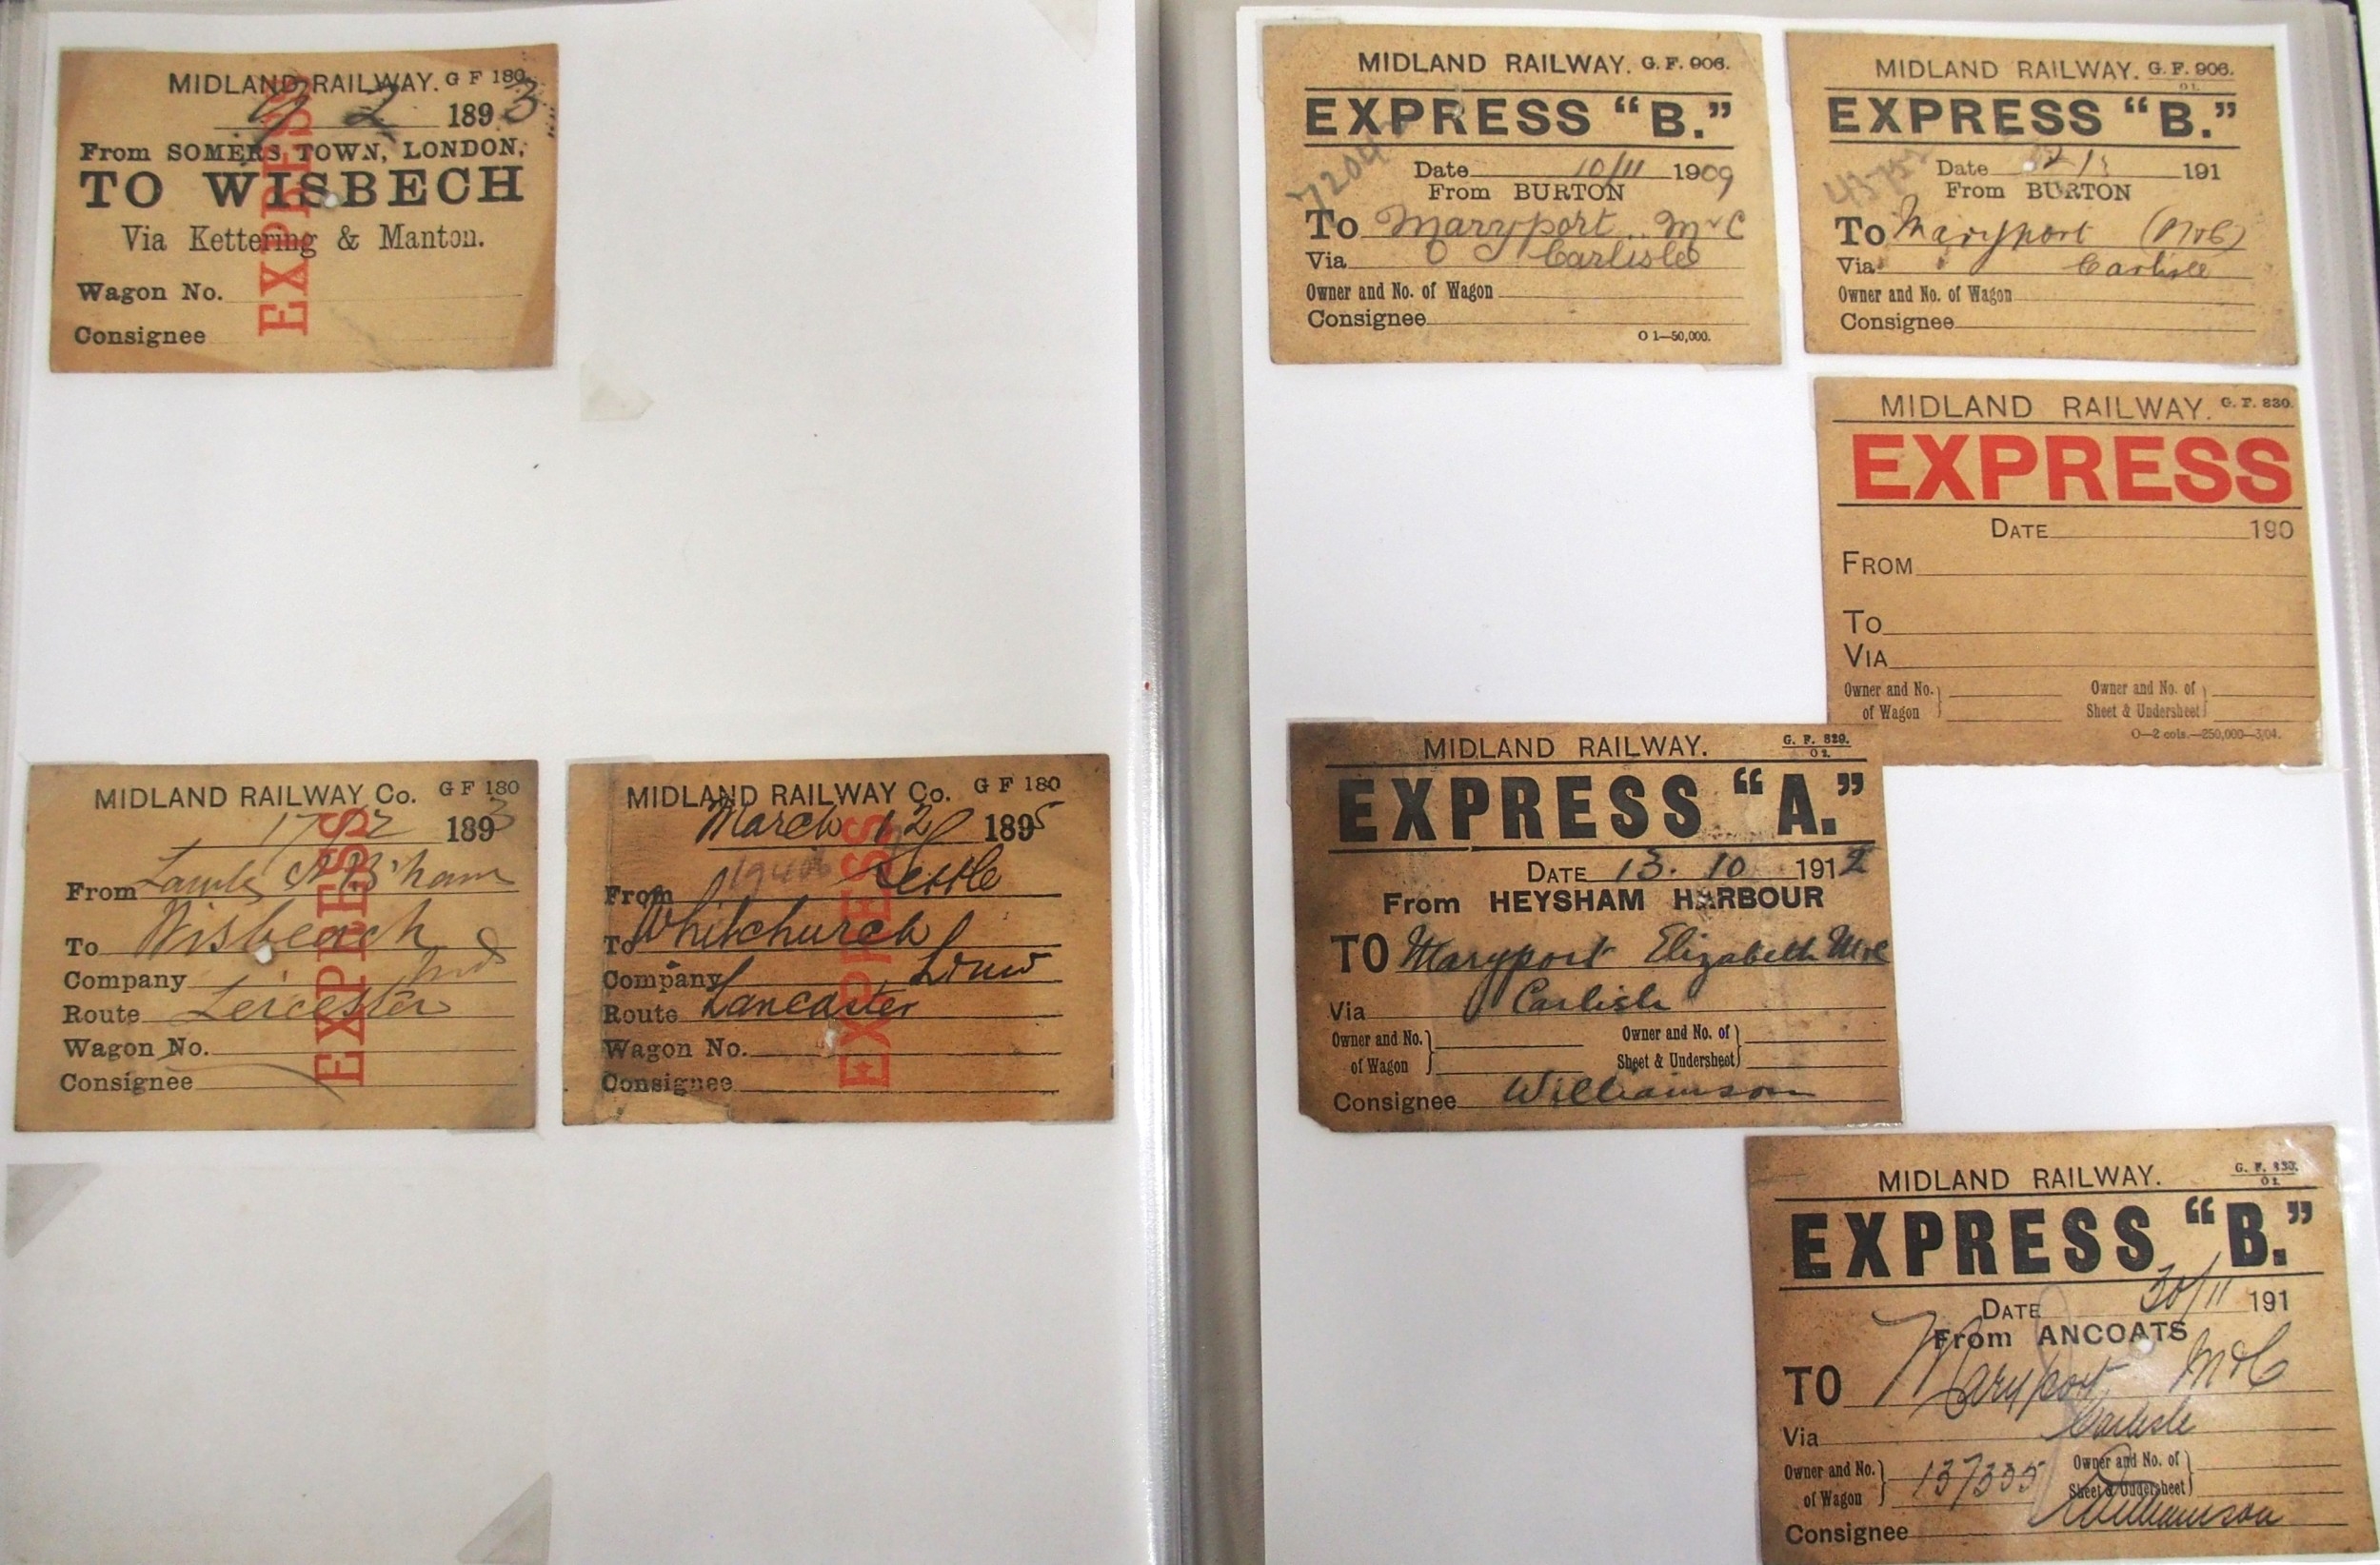 MIDLAND RAILWAY. G F 180.
9 2 1893
From SOMERS TOWN, LONDON,
TO WISBECH
Via Kettering & Manton.
Wagon No.
Consignee
EXPRESS
MIDLAND RAILWAY Co. G F 180
17/2 1893
From Lawley St B'ham
To Wisbeach
Company Mid
Route Leicester
Wagon No.
Consignee
EXPRESS
MIDLAND RAILWAY Co. G F 180
March 12 1895
From Settle
To Whitchurch
Company
Route Lancaster
Wagon No.
Consignee
EXPRESS
MIDLAND RAILWAY. G. F. 906.
EXPRESS “B.”
Date 10/11 1909
From BURTON
To Maryport M&C
Via Carlisle
Owner and No. of Wagon
Consignee
O 1—50,000.
MIDLAND RAILWAY. G. F. 906.
O1.
EXPRESS “B.”
Date 191
From BURTON
To Maryport (M&C)
Via Carlisle
Owner and No. of Wagon
Consignee
MIDLAND RAILWAY. G. F. 830.
EXPRESS
DATE 190
FROM
TO
VIA
Owner and No. of Wagon
Owner and No. of Sheet & Undersheet
O—2 cols.—250,000—3/04.
MIDLAND RAILWAY. G. F. 829.
O2.
EXPRESS “A.”
DATE 13. 10 1912
From HEYSHAM HARBOUR
TO Maryport Elizabeth M&C
Via Carlisle
Owner and No. of Wagon
Owner and No. of Sheet & Undersheet
Consignee Williamson
MIDLAND RAILWAY. G. F. 830.
O1.
EXPRESS “B.”
DATE 30/11 191
From ANCOATS
TO Maryport M&C
Via Carlisle
Owner and No. of Wagon 137335
Owner and No. of Sheet & Undersheet
Consignee Williamson